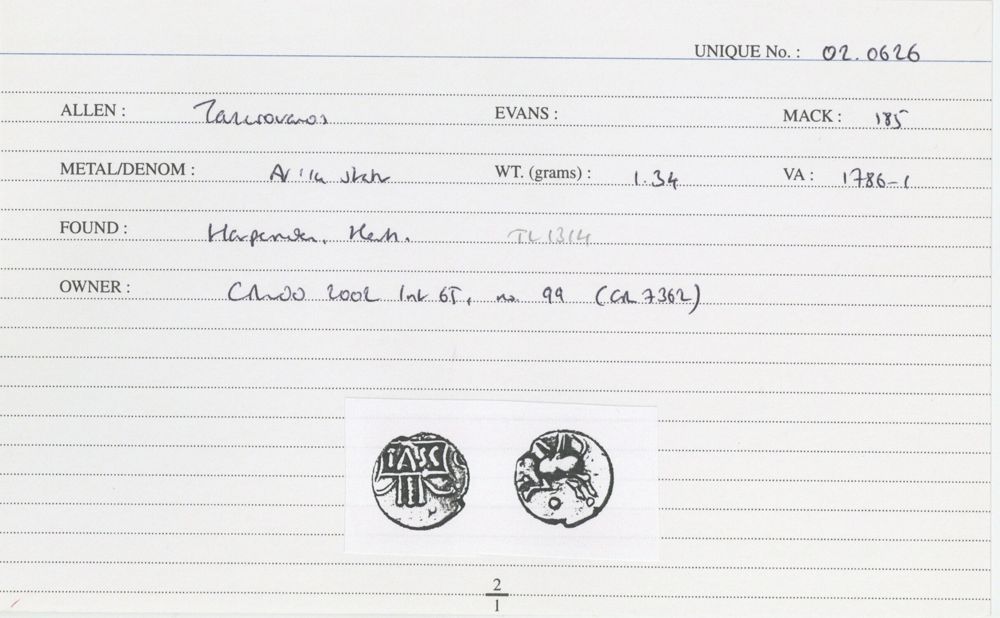 UNIQUE No. : 02.0626
ALLEN : Tasciovanos EVANS : MACK : 185
METAL/DENOM : AV 1/4 stater WT. (grams) : 1.34 VA : 1786-1
FOUND : Harpenden, Herts. TL1314
OWNER : 2002 67, no. 99 (CR 7362)
TASC
2
1